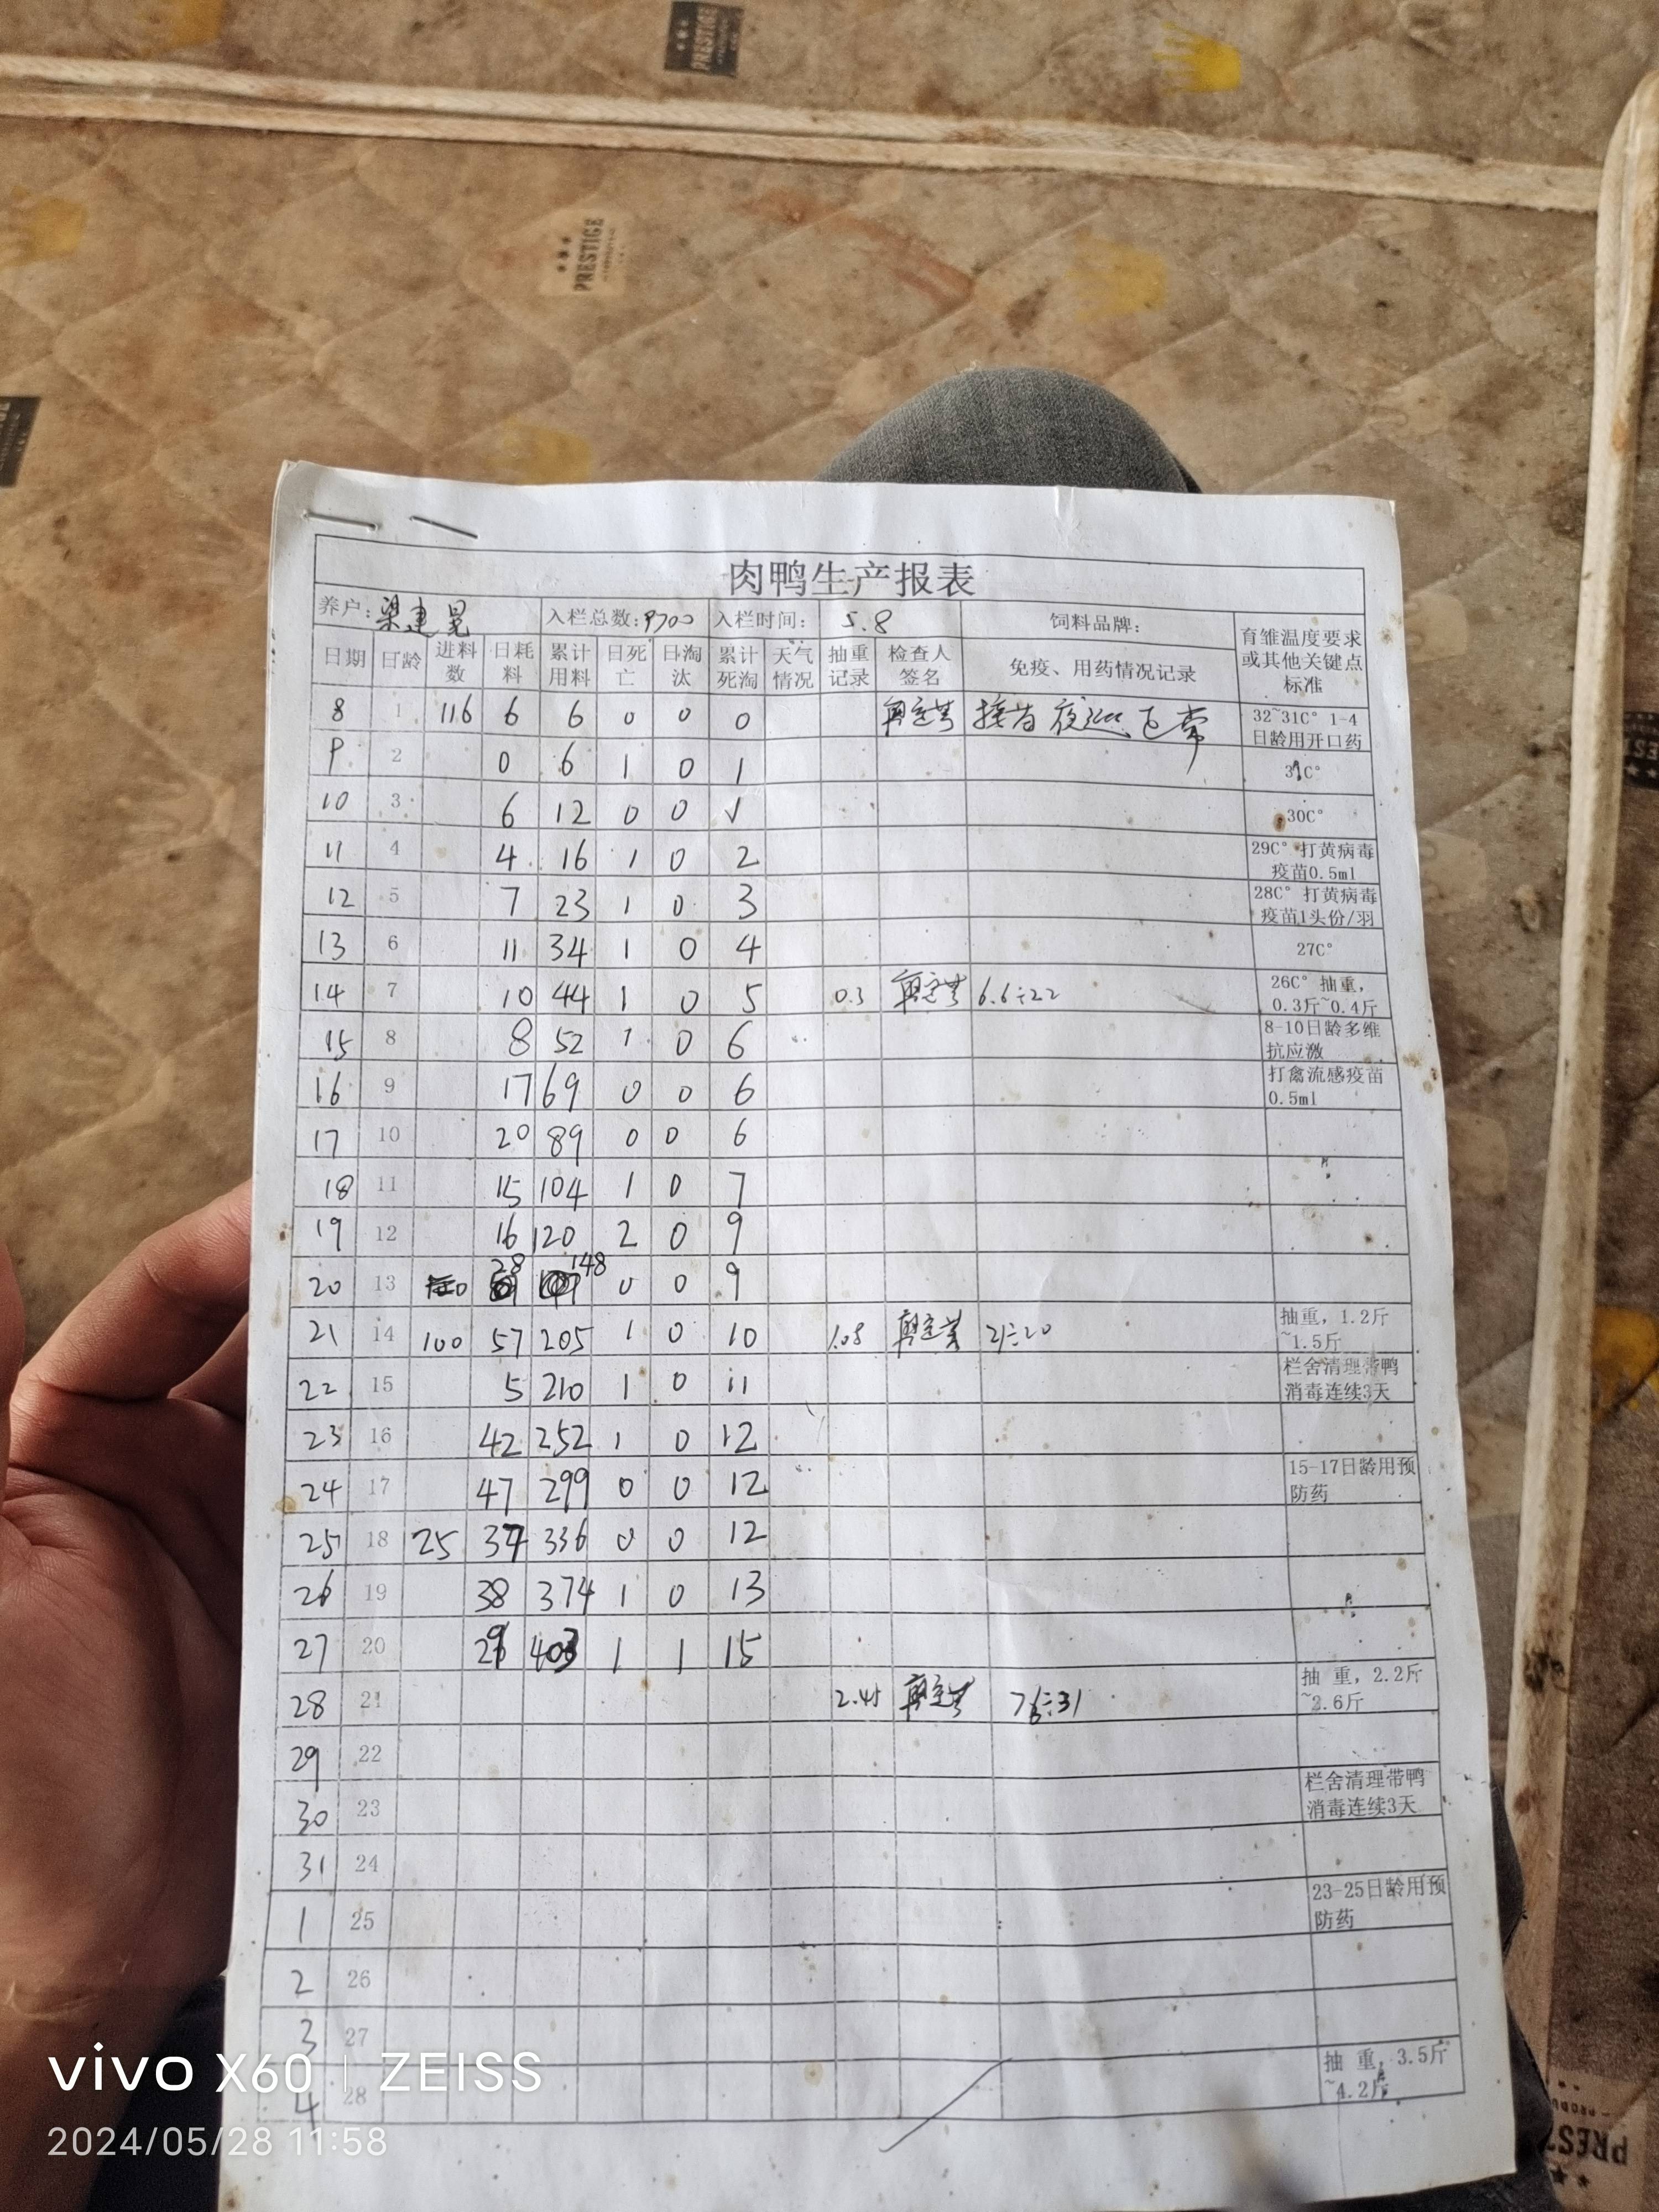 PRESTIGE
PRESTIGE
肉鸭生产报表
养户: 梁建晃 入栏总数: 9700 入栏时间: 5.8 饲料品牌: 育雏温度要求或其他关键点标准
日期 日龄 进料数 日耗料 累计用料 日死亡 日淘汰 累计死淘 天气情况 抽重记录 检查人签名 免疫、用药情况记录
8 1 116 6 6 0 0 0 接苗 夜巡 正常 32~31C° 1-4日龄用开口药
9 2 0 6 1 0 1 31C°
10 3 6 12 0 0 1 30C°
11 4 4 16 1 0 2 29C° 打黄病毒疫苗0.5ml
12 5 7 23 1 0 3 28C° 打黄病毒疫苗1头份/羽
13 6 11 34 1 0 4 27C°
14 7 10 44 1 0 5 0.3 6.6÷22 26C° 抽重, 0.3斤~0.4斤
15 8 8 52 1 0 6 8-10日龄多维抗应激
16 9 17 69 0 0 6 打禽流感疫苗0.5ml
17 10 20 89 0 0 6
18 11 15 104 1 0 7
19 12 16 120 2 0 9
20 13 28 148 0 0 9
21 14 100 57 205 1 0 10 1.05 21÷20 抽重, 1.2斤~1.5斤
22 15 5 210 1 0 11 栏舍清理带鸭消毒连续3天
23 16 42 252 1 0 12
24 17 47 299 0 0 12 15-17日龄用预防药
25 18 25 37 336 0 0 12
26 19 38 374 1 0 13
27 20 29 403 1 1 15
28 21 2.45 76÷31 抽 重, 2.2斤~2.6斤
29 22
30 23 栏舍清理带鸭消毒连续3天
31 24
1 25 23-25日龄用预防药
2 26
3 27
4 28 抽 重, 3.5斤~4.2斤
vivo X60 | ZEISS
2024/05/28 11:58